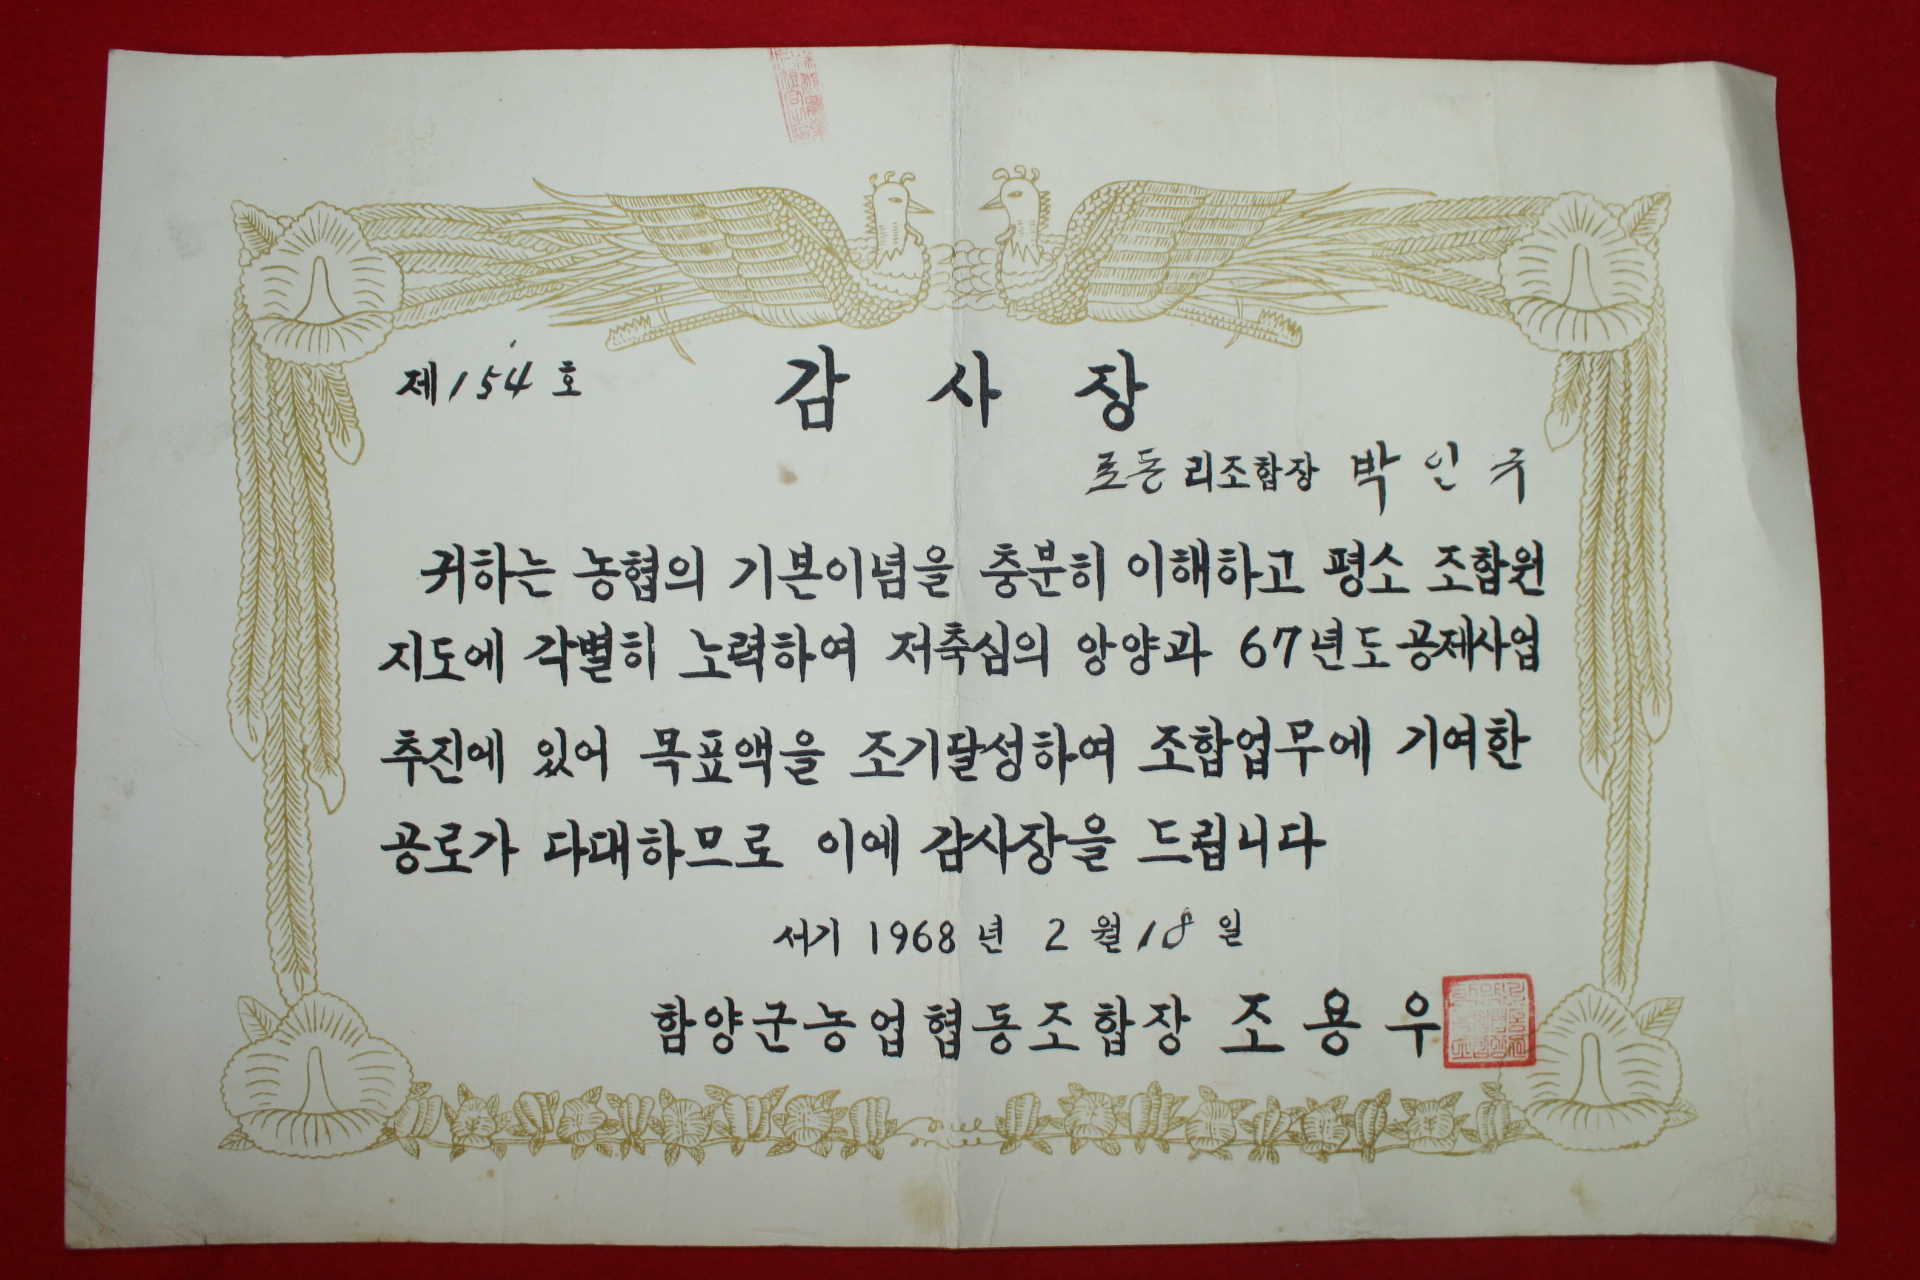 제 154 호
감 사 장
리조합장 박 인 구
귀하는 농협의 기본이념을 충분히 이해하고 평소 조합원
지도에 각별히 노력하여 저축심의 앙양과 67년도 공제사업
추진에 있어 목표액을 조기달성하여 조합업무에 기여한
공로가 다대하므로 이에 감사장을 드립니다
서기 1968 년 2 월 18 일
함양군농업협동조합장 조 용 우